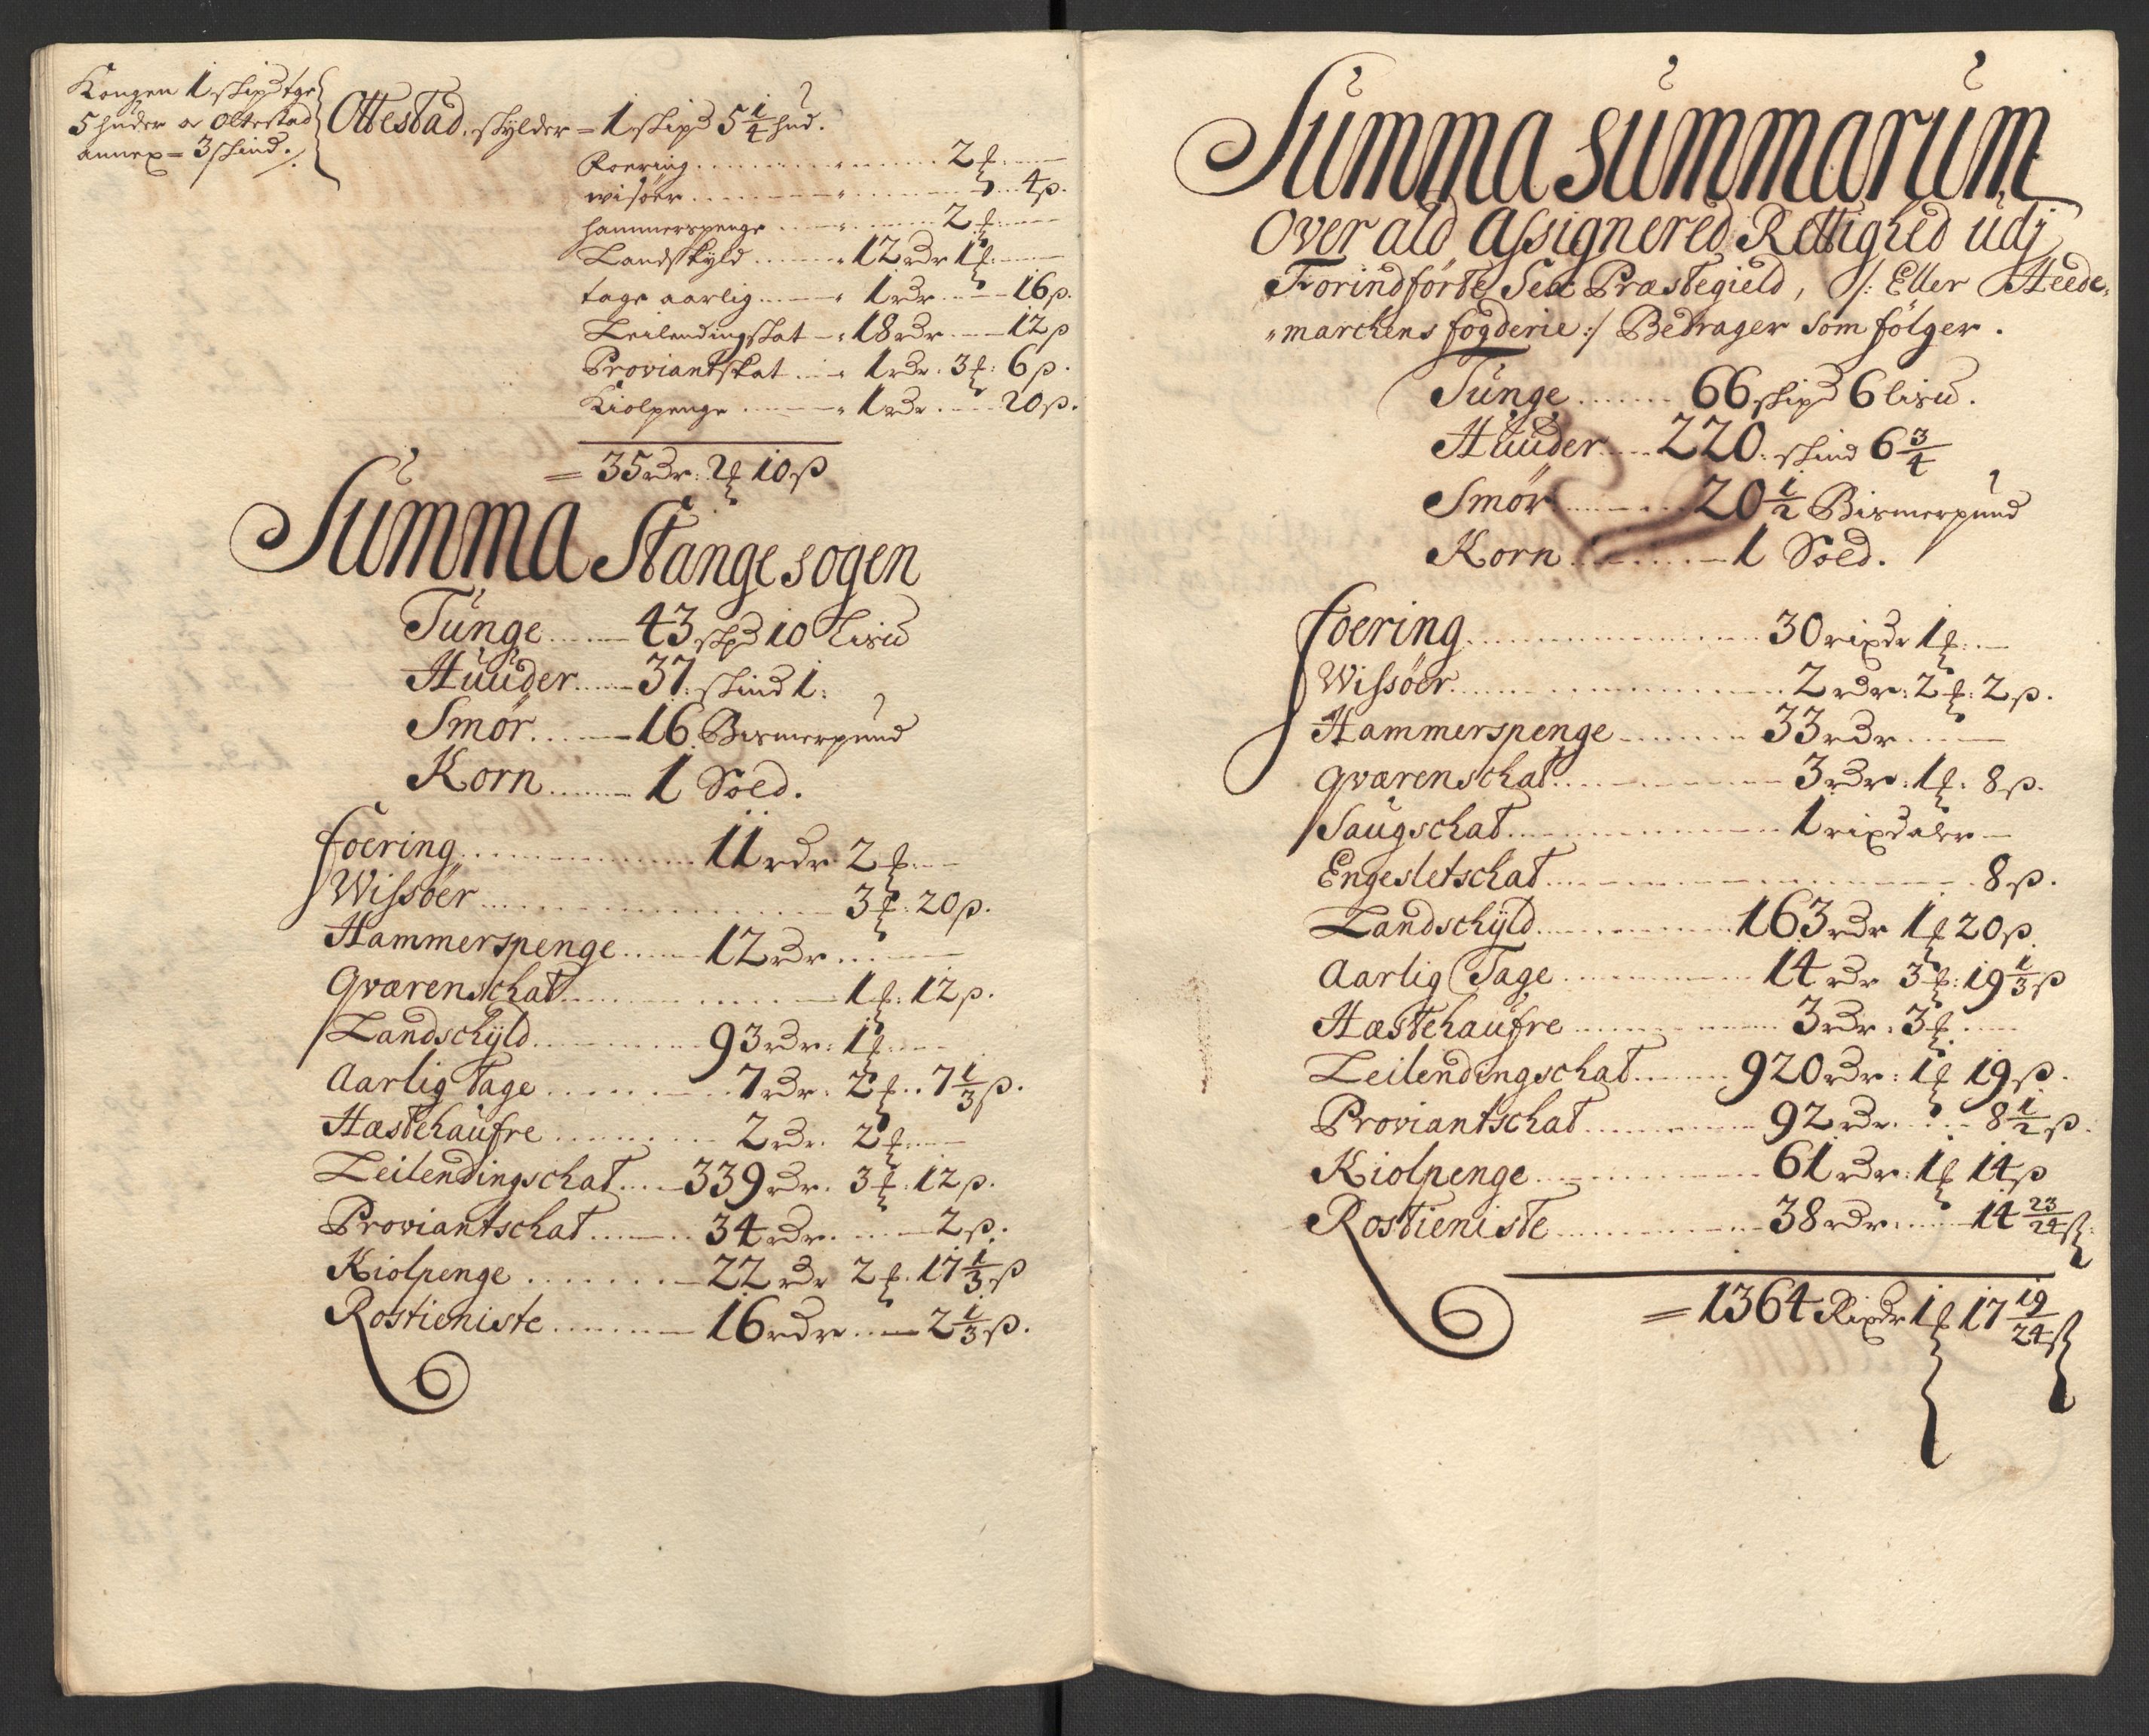 Kongen 1 skipd tge
5 huder or Ottestad
annex = 3 skind ./.
Ottestad, skylder = 1 skipd 5 1/4 hud.
Foering ........ 2 ₰ ——
wisöer ........ 4 ß.
hammerspenge ........ 2 ₰ ——
Landskyld ........ 12 rdr 1 ₰ ——
tage aarlig ........ 1 rdr .... 16 ß.
Leilendingskat — 18 rdr — 12 ß
Proviantskat ... 1 rdr. 3 ₰: 6 ß.
Kiolpenge ........ 1 rdr .... 20 ß.
= 35 rdr: 2 ₰ 10 ß
Summa Stange sogen
Tunge ........ 43 skpd 10 Lisu
Huuder ........ 37: skind 1:
Smör ........ 16 Bismerpund
Korn ........ 1 Sold.
foering ........ 11 rdr 2 ₰ ——
Wissöer ........ 3 ₰: 20 ß.
Hammerspenge ........ 12 rdr ........
Qværenschat ........ 1 ₰: 12 ß.
Landschÿld ........ 93 rdr: 1 ₰ ——
Aarlig Tage ........ 7 rdr: 2 ₰ .. 7 1/3 ß.
Hæstehaufre ........ 2 rdr. 2 ₰ ——
Leilendingschat .... 339 rdr. 3 ₰: 12 ß.
Proviantschat ........ 34 rdr. .... 2 ß.
Kiolpenge ........ 22 rdr 2 ₰. 17 1/3 ß
Rostieniste ........ 16 rdr .... 2 1/3 ß.
Summa summarum
Over ald Assignered Rettighed udj
Forindförte Sex Præstegield, /: Eller Heede,
"marchens fogderie :/ Bedrager som fölger.
Tunge ........ 66 skipd 6 lisu.
Huuder ........ 220: skind 6 3/4
Smör ........ 20 1/2 Bismerpund
Korn ........ 1 Sold.
foering ........ 30 rixdr 1 ₰ ——
Wissöer ........ 2 rdr: 2 ₰: 2 ß.
Hammerspenge ........ 33 rdr ........
Qværenschat ........ 3 rdr: 1 ₰: 8 ß.
Saugschat ........ 1 rixdaler —
Engesletschat ........ 8 ß.
Landschÿld ........ 163 rdr 1 ₰ 20 ß
Aarlig Tage ........ 14 rdr 3 ₰: 19 1/3 ß
Hæstehaufre ........ 3 rdr. 3 ₰ ....
Leilendingschat ........ 920 rdr: 1 ₰ 19 ß.
Proviantschat ........ 92 rdr. .... 8 1/2 ß.
Kiolpenge ........ 61 rdr: 1 ₰ 14 ß
Rostieniste ........ 38 rdr .... 14 23/24 ß
= 1364 Rixdr 1 ₰ 17 19/24 ß